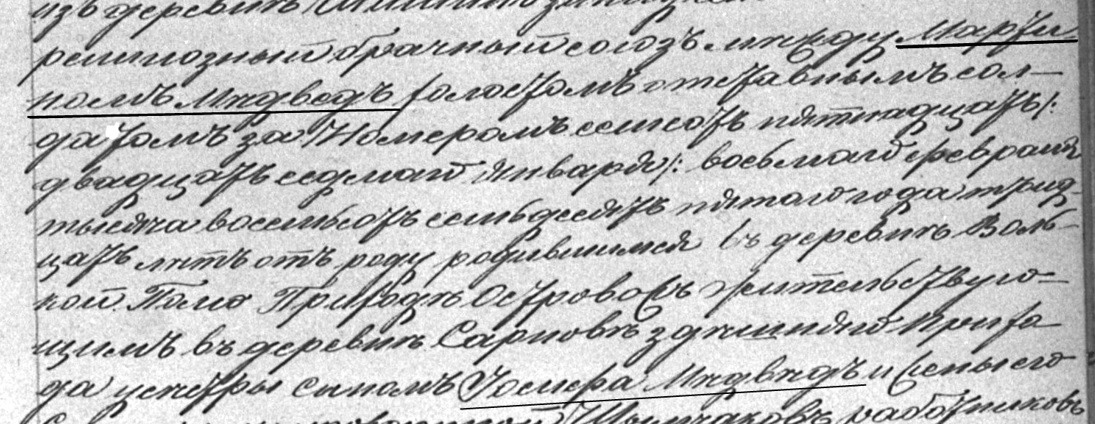 изъ деревни
религiозный брачный союзъ между Марци
номъ Мѣдведъ холостомъ отставнымъ сол-
датомъ за Номеромъ семсотъ пятнадцать /:
двадцать седмаго Января /: восьмаго февраля
тысяча восемьсотъ семьдесятъ пятаго года трид-
цать лѣтъ отъ роду родившимся въ деревнѣ Воль-
кой Приходѣ Островохъ жительствую-
щимъ въ деревнѣ Сарновѣ здѣшняго Прихо
да сыномъ Іосифа Мѣдвѣдъ и жены его
работниковъ